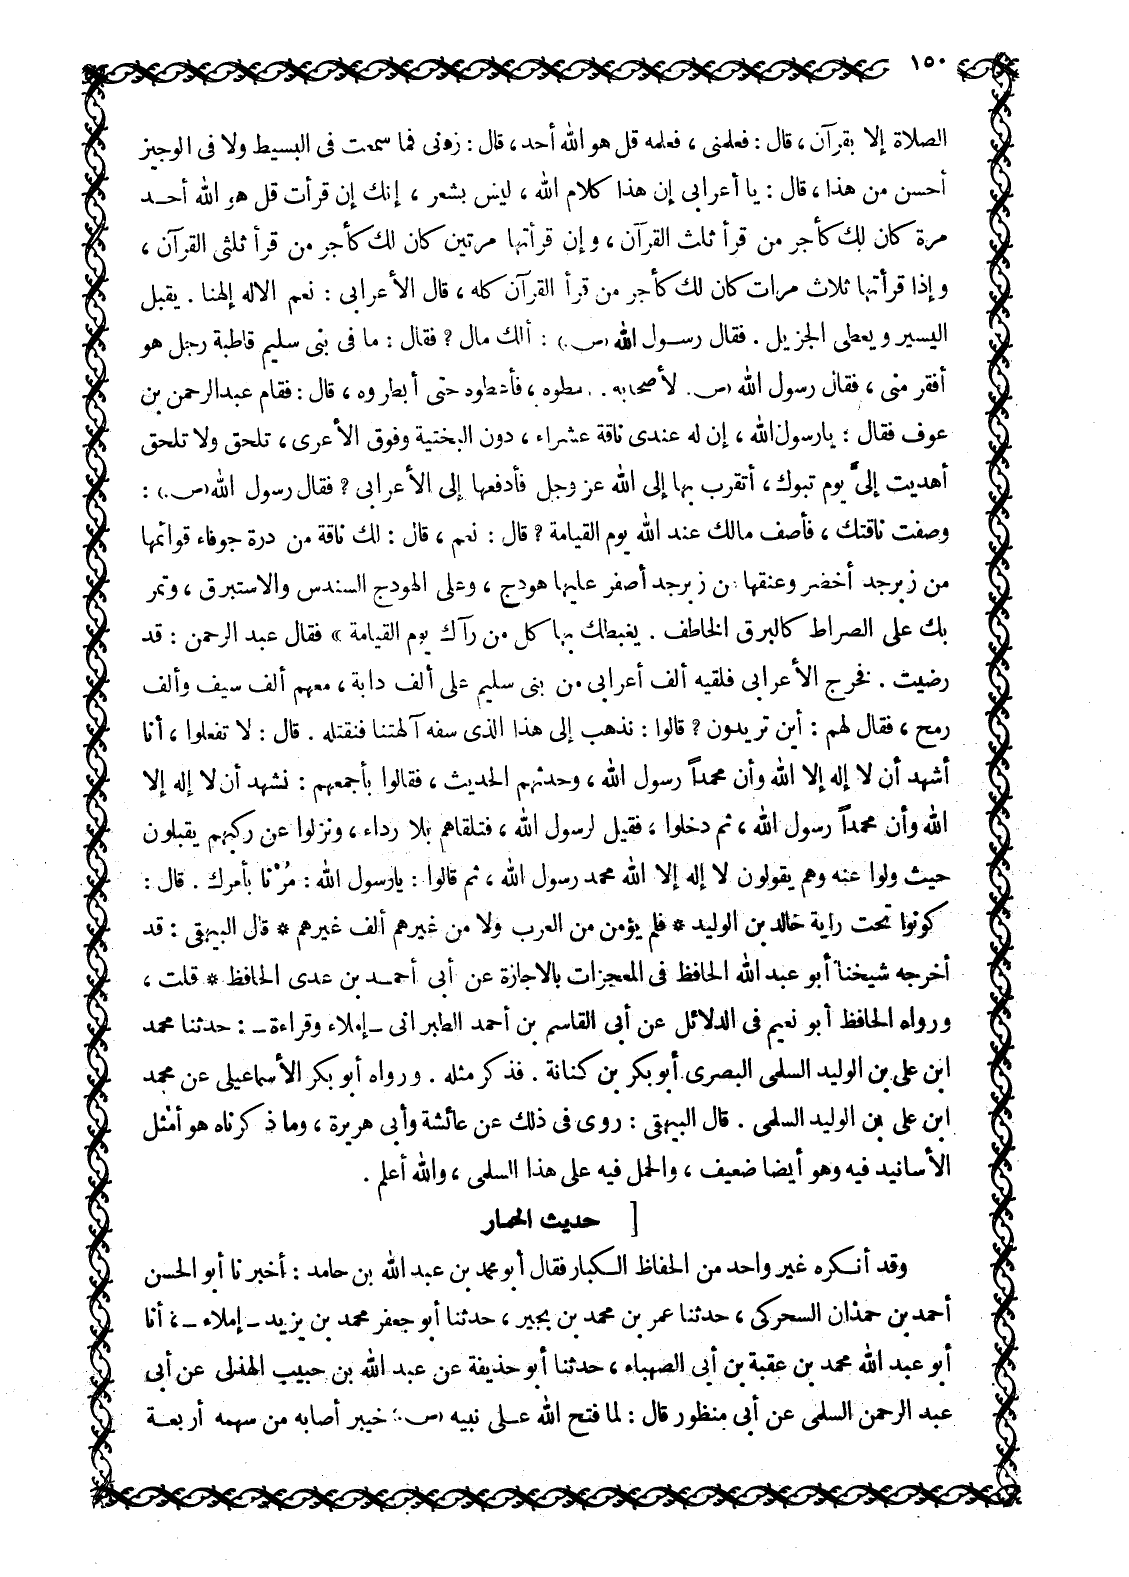 ١٥٠
الصلاة إلا بقرآن ، قال : فعلمنى ، فعلمه قل هو الله أحد ، قال : زدنى فما سمعت فى البسيط ولا فى الوجيز
أحسن من هذا ، قال : يا أعرابى إن هذا كلام الله ، ليس بشعر ، إنك إن قرأت قل هو الله أحـد
مرة كان لك كأجر من قرأ ثلث القرآن ، و إن قرأتها مرتين كان لك كأجر من قرأ ثلثى القرآن ،
و إذا قرأتها ثلاث مرات كان لك كأجر من قرأ القرآن كله ، قال الأعرابى : نعم الاله إلهنا . يقبل
اليسير و يعطى الجزيل . فقال رسـول الله (ص.) : ألك مال ? فقال : ما فى بنى سليم قاطبة رجل هو
أفقر منى ، فقال رسول الله (ص. لأصحابه . . مطوه ، فأعطوه حتى أبطروه ، قال : فقام عبدالرحمن بن
عوف فقال : يارسول الله ، إن له عندى ناقة عشراء ، دون البختية وفوق الأعرى ، تلحق ولا تلحق
أهديت إلىَّ يوم تبوك ، أتقرب بها إلى الله عز وجل فأدفعها إلى الأعرابى ? فقال رسول الله (ص.) :
وصفت ناقتك ، فأصف مالك عند الله يوم القيامة ? قال : نعم ، قال : لك ناقة من درة جوفاء قوائمها
من زبرجد أخضر وعنقها من زبرجد أصفر عليها هودج ، وعلى الهودج السندس والاستبرق ، وتمر
بك على الصراط كالبرق الخاطف . يغبطك بها كل من رآك يوم القيامة » فقال عبد الرحمن : قد
رضيت . فخرج الأعرابى فلقيه ألف أعرابى من بنى سليم على ألف دابة ، معهم ألف سيف وألف
رمح ، فقال لهم : أين تريدون ? قالوا : نذهب إلى هذا الذى سفه آلهتنا فنقتله . قال : لا تفعلوا ، أنا
أشهد أن لا إله إلا الله وأن محمداً رسول الله ، وحدثهم الحديث ، فقالوا بأجمعهم : نشهد أن لا إله إلا
الله وأن محمداً رسول الله ، ثم دخلوا ، فقيل لرسول الله ، فتلقاهم بلا رداء ، ونزلوا عن ركبهم يقبلون
حيث ولوا عنه وهم يقولون لا إله إلا الله محمد رسول الله ، ثم قالوا : يارسول الله : مُرْنا بأمرك . قال :
كونوا تحت راية خالد بن الوليد * فلم يؤمن من العرب ولا من غيرهم ألف غيرهم * قال البيهقى : قد
أخرجه شيخنا أبو عبد الله الحافظ فى المعجزات بالاجازة عن أبى أحمـد بن عدى الحافظ * قلت ،
ورواه الحافظ أبو نعيم فى الدلائل عن أبى القاسم بن أحمد الطبرانى ـ إملاء وقراءة ـ : حدثنا محمد
ابن على بن الوليد السلمى البصرى أبو بكر بن كنانة . فذكر مثله . ورواه أبو بكر الأسماعيلى عن محمد
ابن على بن الوليد السلمى . قال البيهقى : روى فى ذلك عن عائشة وأبى هريرة ، وما ذكرناه هو أمثل
الأسانيد فيه وهو أيضا ضعيف ، والحمل فيه على هذا السلمى ، والله أعلم .
[ حديث الحمار
وقد أنـكره غير واحد من الحفاظ الـكبار فقال أبو محمد بن عبد الله بن حامد : أخبرنا أبو الحسن
أحمد بن حمدان السحركى ، حدثنا عمر بن محمد بن بجير ، حدثنا أبو جعفر محمد بن يزيد ـ إملاء ـ ، أنا
أبو عبد الله محمد بن عقبة بن أبى الصهباء ، حدثنا أبو حذيفة عن عبد الله بن حبيب الهذلى عن أبى
عبد الرحمن السلمى عن أبى منظور قال : لما فتح الله عـلى نبيه (ص.) خيبر أصابه من سهمه أربعـة